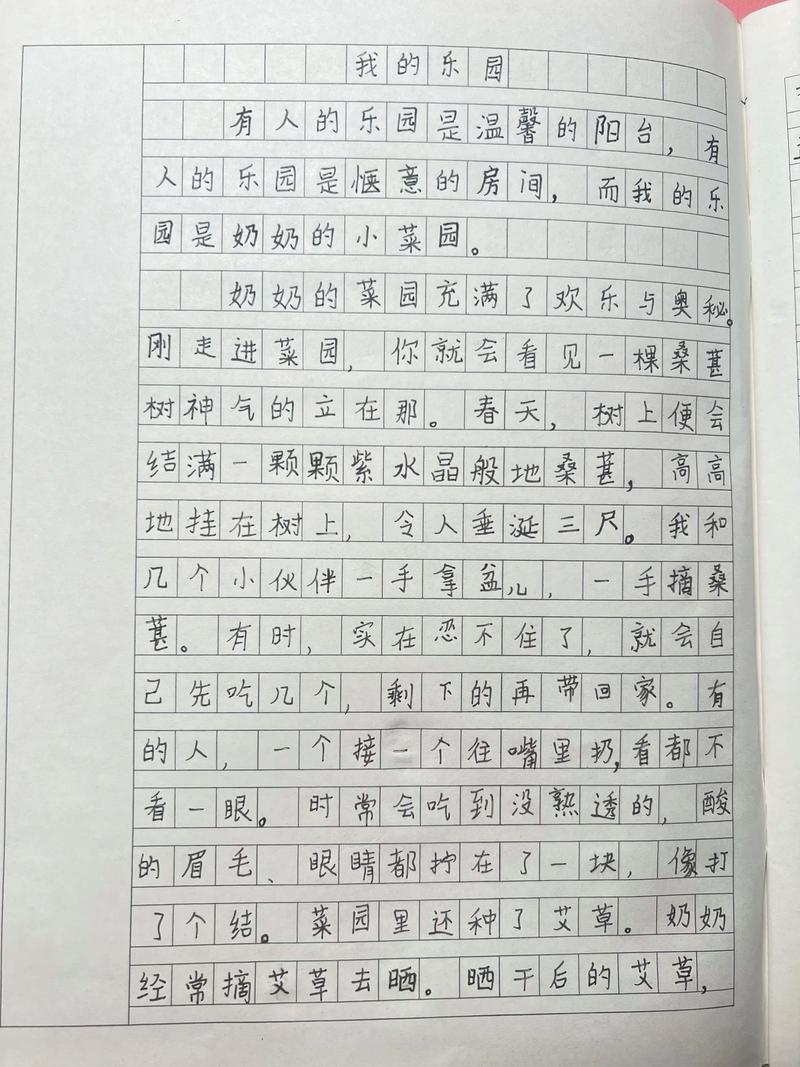 我的乐园
有人的乐园是温馨的阳台，有
人的乐园是惬意的房间，而我的乐
园是奶奶的小菜园。
奶奶的菜园充满了欢乐与奥秘。
刚走进菜园，你就会看见一棵桑葚
树神气的立在那。春天，树上便会
结满一颗颗紫水晶般地桑葚，高高
地挂在树上，令人垂涎三尺。我和
几个小伙伴一手拿盆儿，一手摘桑
葚。有时，实在忍不住了，就会自
己先吃几个，剩下的再带回家。有
的人，一个接一个往嘴里扔，看都不
看一眼。时常会吃到没熟透的，酸
的眉毛、眼睛都拧在了一块，像打
了个结。菜园里还种了艾草。奶奶
经常摘艾草去晒。晒干后的艾草，